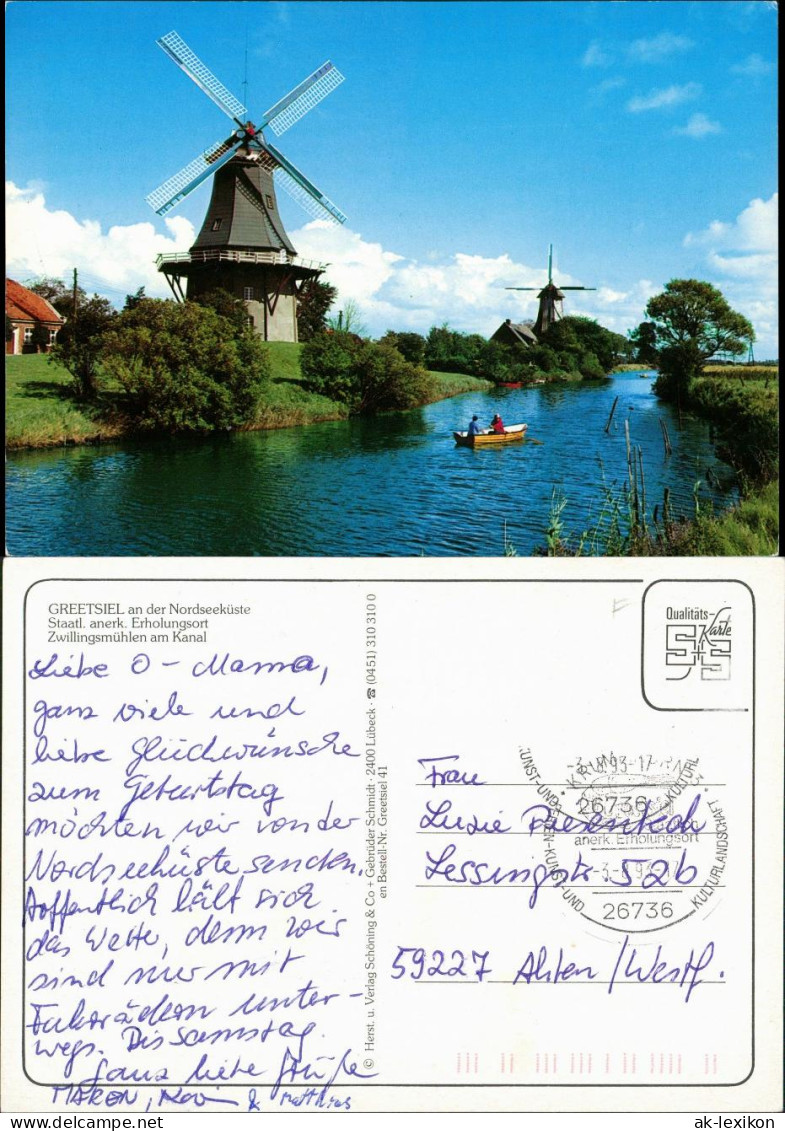 GREETSIEL an der Nordseeküste
Staatl. anerk. Erholungsort
Zwillingsmühlen am Kanal
Liebe O - Mama,
ganz viele und
liebe Glückwünsche
zum Geburtstag
möchten wir von der
Nordseeküste senden.
Hoffentlich hält sich
das Wetter, denn wir
sind nur mit
Fahrrädern unter-
wegs. Bis Samstag.
Ganz liebe Grüße
MAREN, & Matthias
© Herst. u. Verlag Schöning & Co + Gebrüder Schmidt · 2400 Lübeck · ☎ (0451) 310 310 0
en Bestell-Nr. Greetsiel 41
Qualitäts-
Karte
S+S
-3.-8.93-17
26736
anerk. Erholungsort
-3.-8.93-17
26736
KULTURLANDSCHAFT
Frau
Lessingstr. 52b
59227 Ahlen / Westf.
ak-lexikon